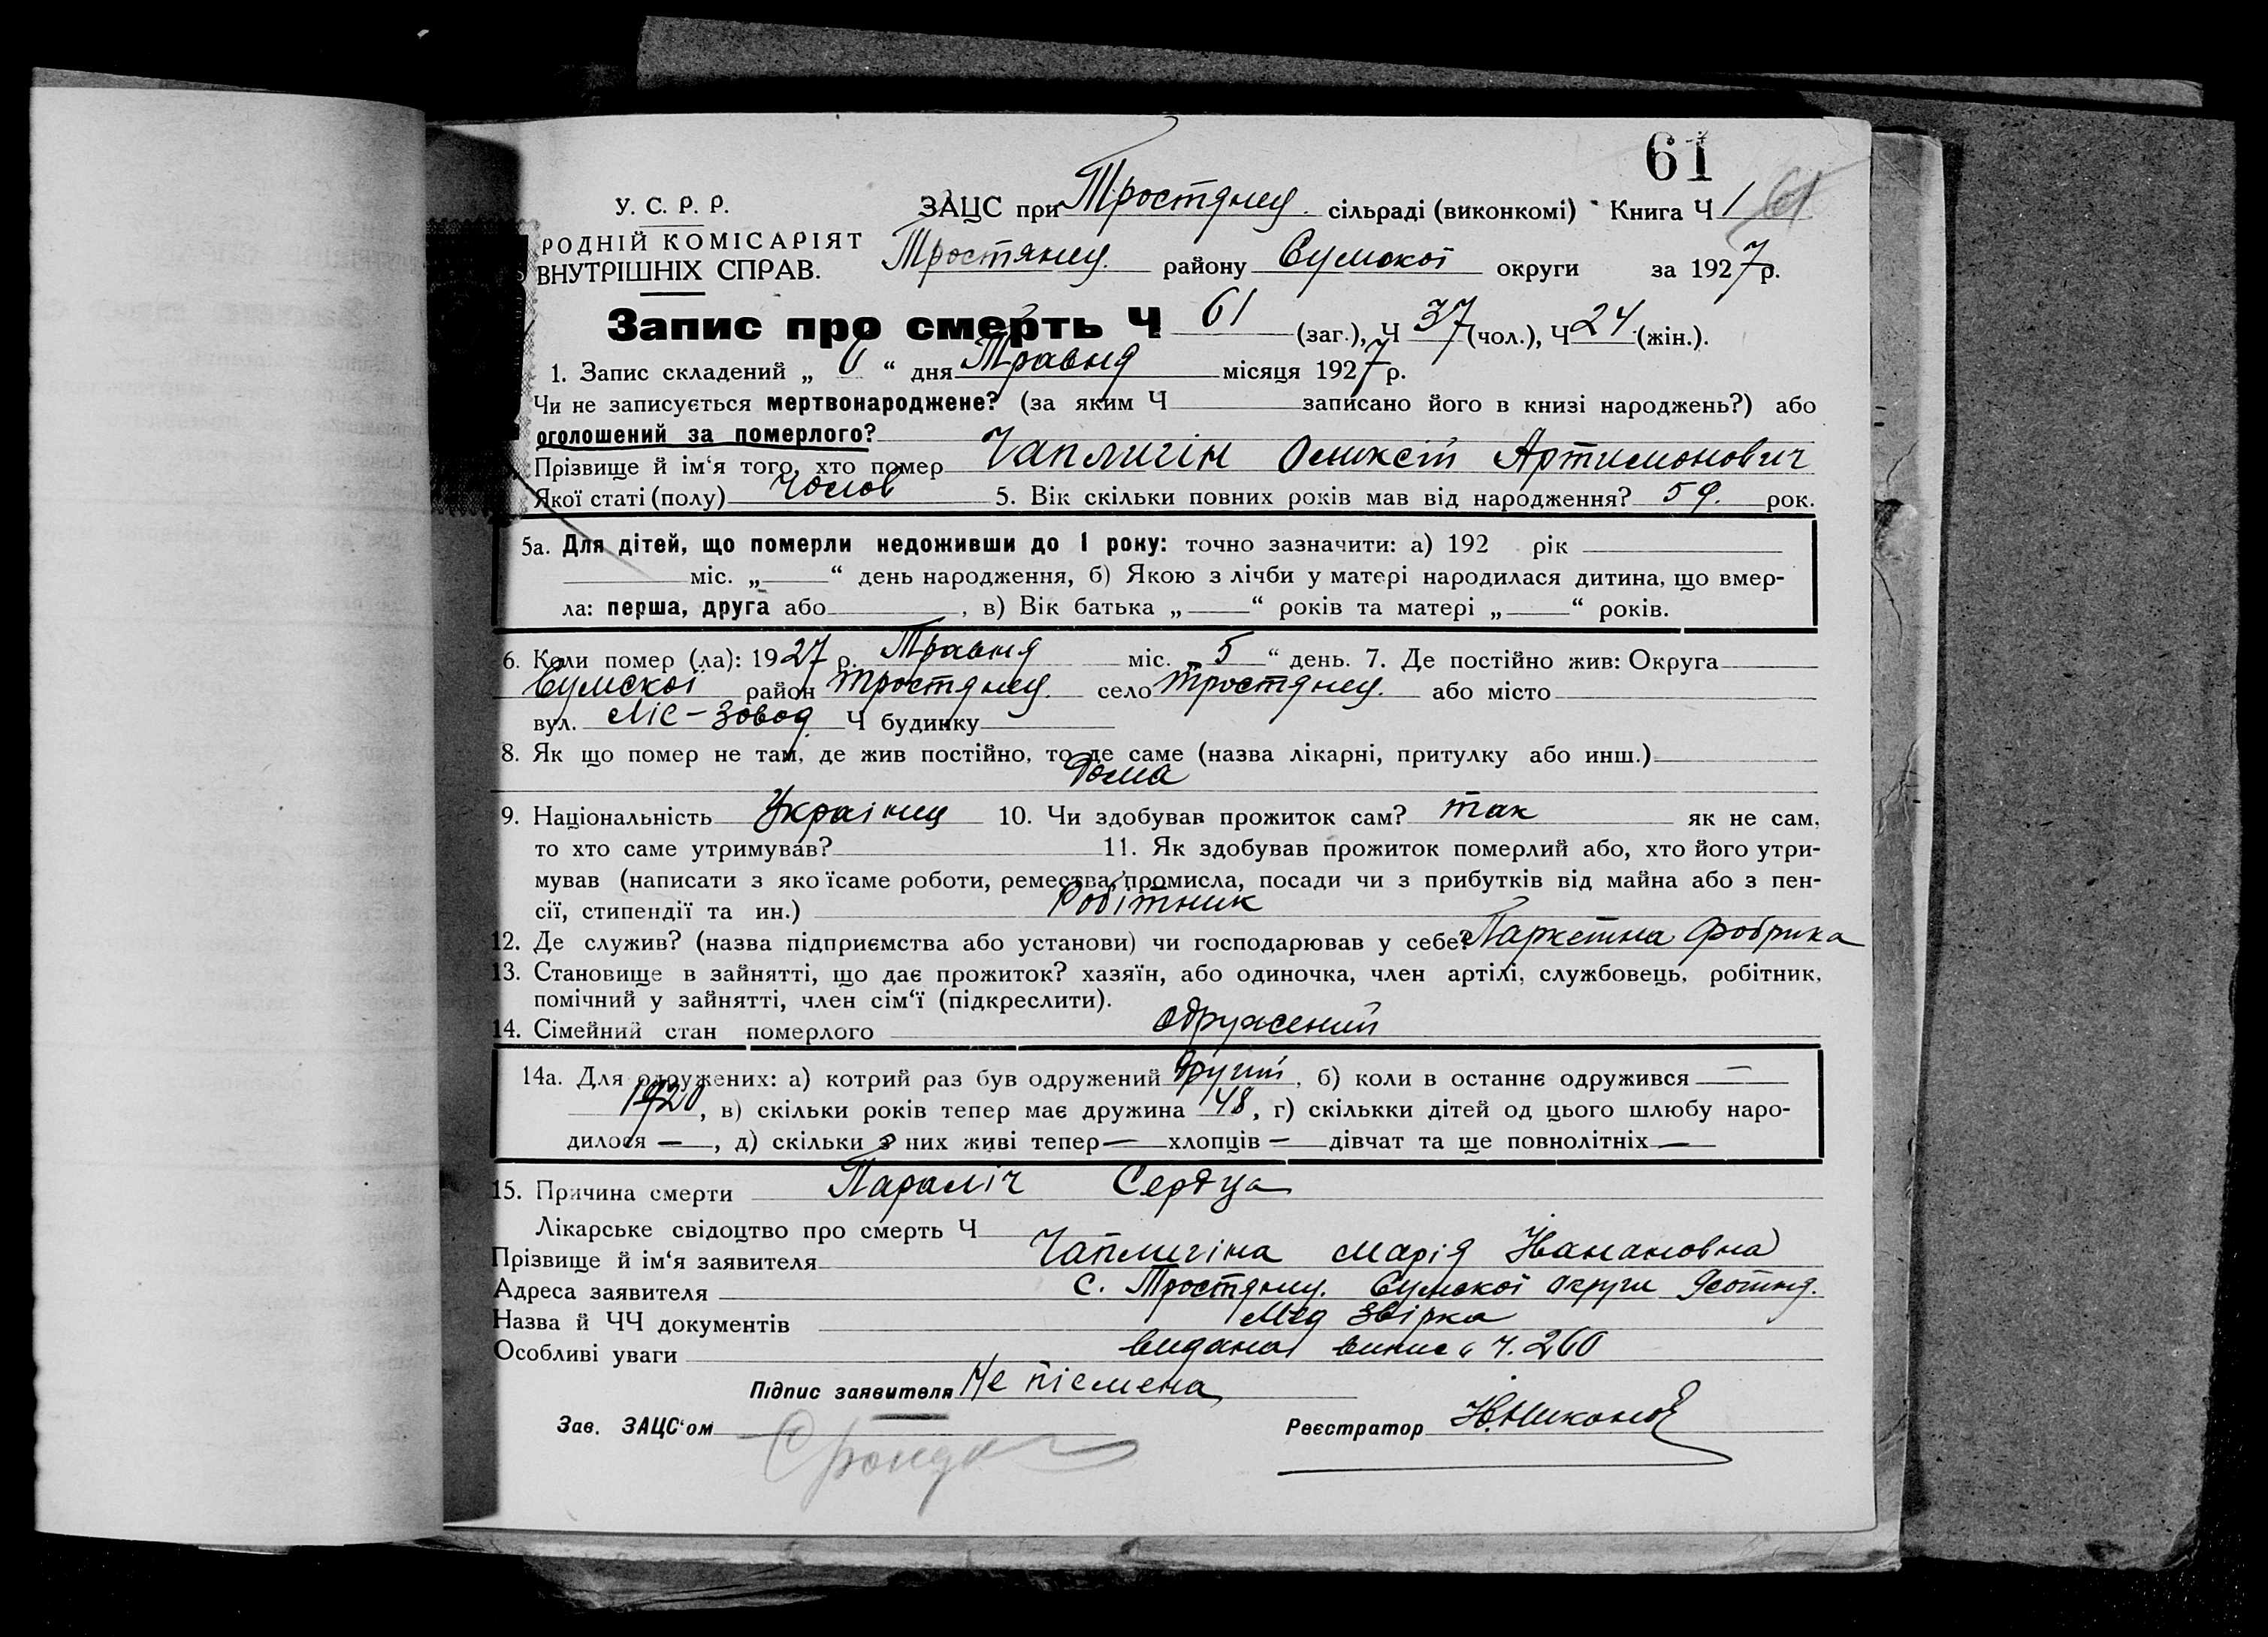 61
У. С. Р. Р. ЗАЦС при Тростянец. сільраді (виконкомі) Книга Ч 1 61
РОДНІЙ КОМІСАРІЯТ
ВНУТРІШНІХ СПРАВ. Тростянец. району Сумської округи за 1927 р.
Запис про смерть Ч 61 (заг.), Ч 37 (чол.), Ч 24 (жін.).
1. Запис складений „ 6 “ дня Травня місяця 1927 р.
Чи не записується мертвонароджене? (за яким Ч записано його в книзі народжень?) або
оголошений за померлого?
Прізвище й ім‘я того, хто помер Чаплигін Оликсій Артимонович
Якої статі (полу) Чолов 5. Вік скільки повних років мав від народження? 59. рок.
5а. Для дітей, що померли недоживши до 1 року: точно зазначити: а) 192 рік
міс. „ “ день народження, б) Якою з лічби у матері народилася дитина, що вмер-
ла: перша, друга або , в) Вік батька „ “ років та матері „ “ років.
6. Коли помер (ла): 1927 р. Травня міс. „ 5 “ день. 7. Де постійно жив: Округа
Сумскої район Тростянец. село Тростянец. або місто
вул. Ліс-зовод Ч будинку
8. Як що помер не там, де жив постійно, то де саме (назва лікарні, притулку або инш.)
Дома
9. Національність Украінец 10. Чи здобував прожиток сам? так як не сам,
то хто саме утримував? 11. Як здобував прожиток померлий або, хто його утри-
мував (написати з якоїсаме роботи, ремества, промисла, посади чи з прибутків від майна або з пен-
сії, стипендії та ин.) Робітник
12. Де служив? (назва підприємства або установи) чи господарював у себе? Паркетна фобрика
13. Становище в зайнятті, що дає прожиток? хазяїн, або одиночка, член артілі, службовець, робітник,
помічний у зайнятті, член сім‘ї (підкреслити).
14. Сімейний стан померлого одружений
14а. Для одружених: а) котрий раз був одружений другий, б) коли в останнє одружився —
1920, в) скільки років тепер має дружина 48, г) скількки дітей од цього шлюбу наро-
дилося —, д) скільки з них живі тепер — хлопців — дівчат та ще повнолітніх —
15. Причина смерти Параліч Сердца
Лікарське свідоцтво про смерть Ч
Прізвище й ім‘я заявителя Чаплигіна Марія
Адреса заявителя с. Тростянец. Сумскої округи
Назва й ЧЧ документів Мед звірка
Особливі уваги видана випис ч. 260
Підпис заявителя Не пісмена
Зав. ЗАЦС‘ом
Реєстратор